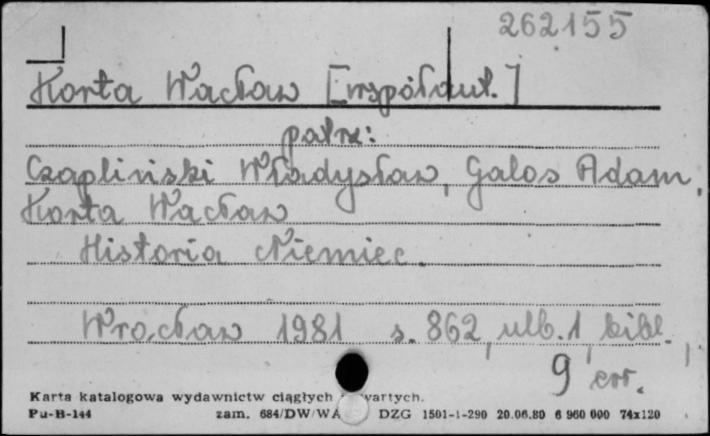 262155
Korta Wacław [współaut.]
patrz:
Czapliński Władysław, Galos Adam,
Korta Wacław
Historia Niemiec.
Wrocław 1981 s. 862, nlb. 1, bibl.,
9 err.
Karta katalogowa wydawnictw ciągłych wartych.
Pu-B-144 zam. 684/DW/WA DZG 1501-1-290 20.06.80 6 960 000 74x120